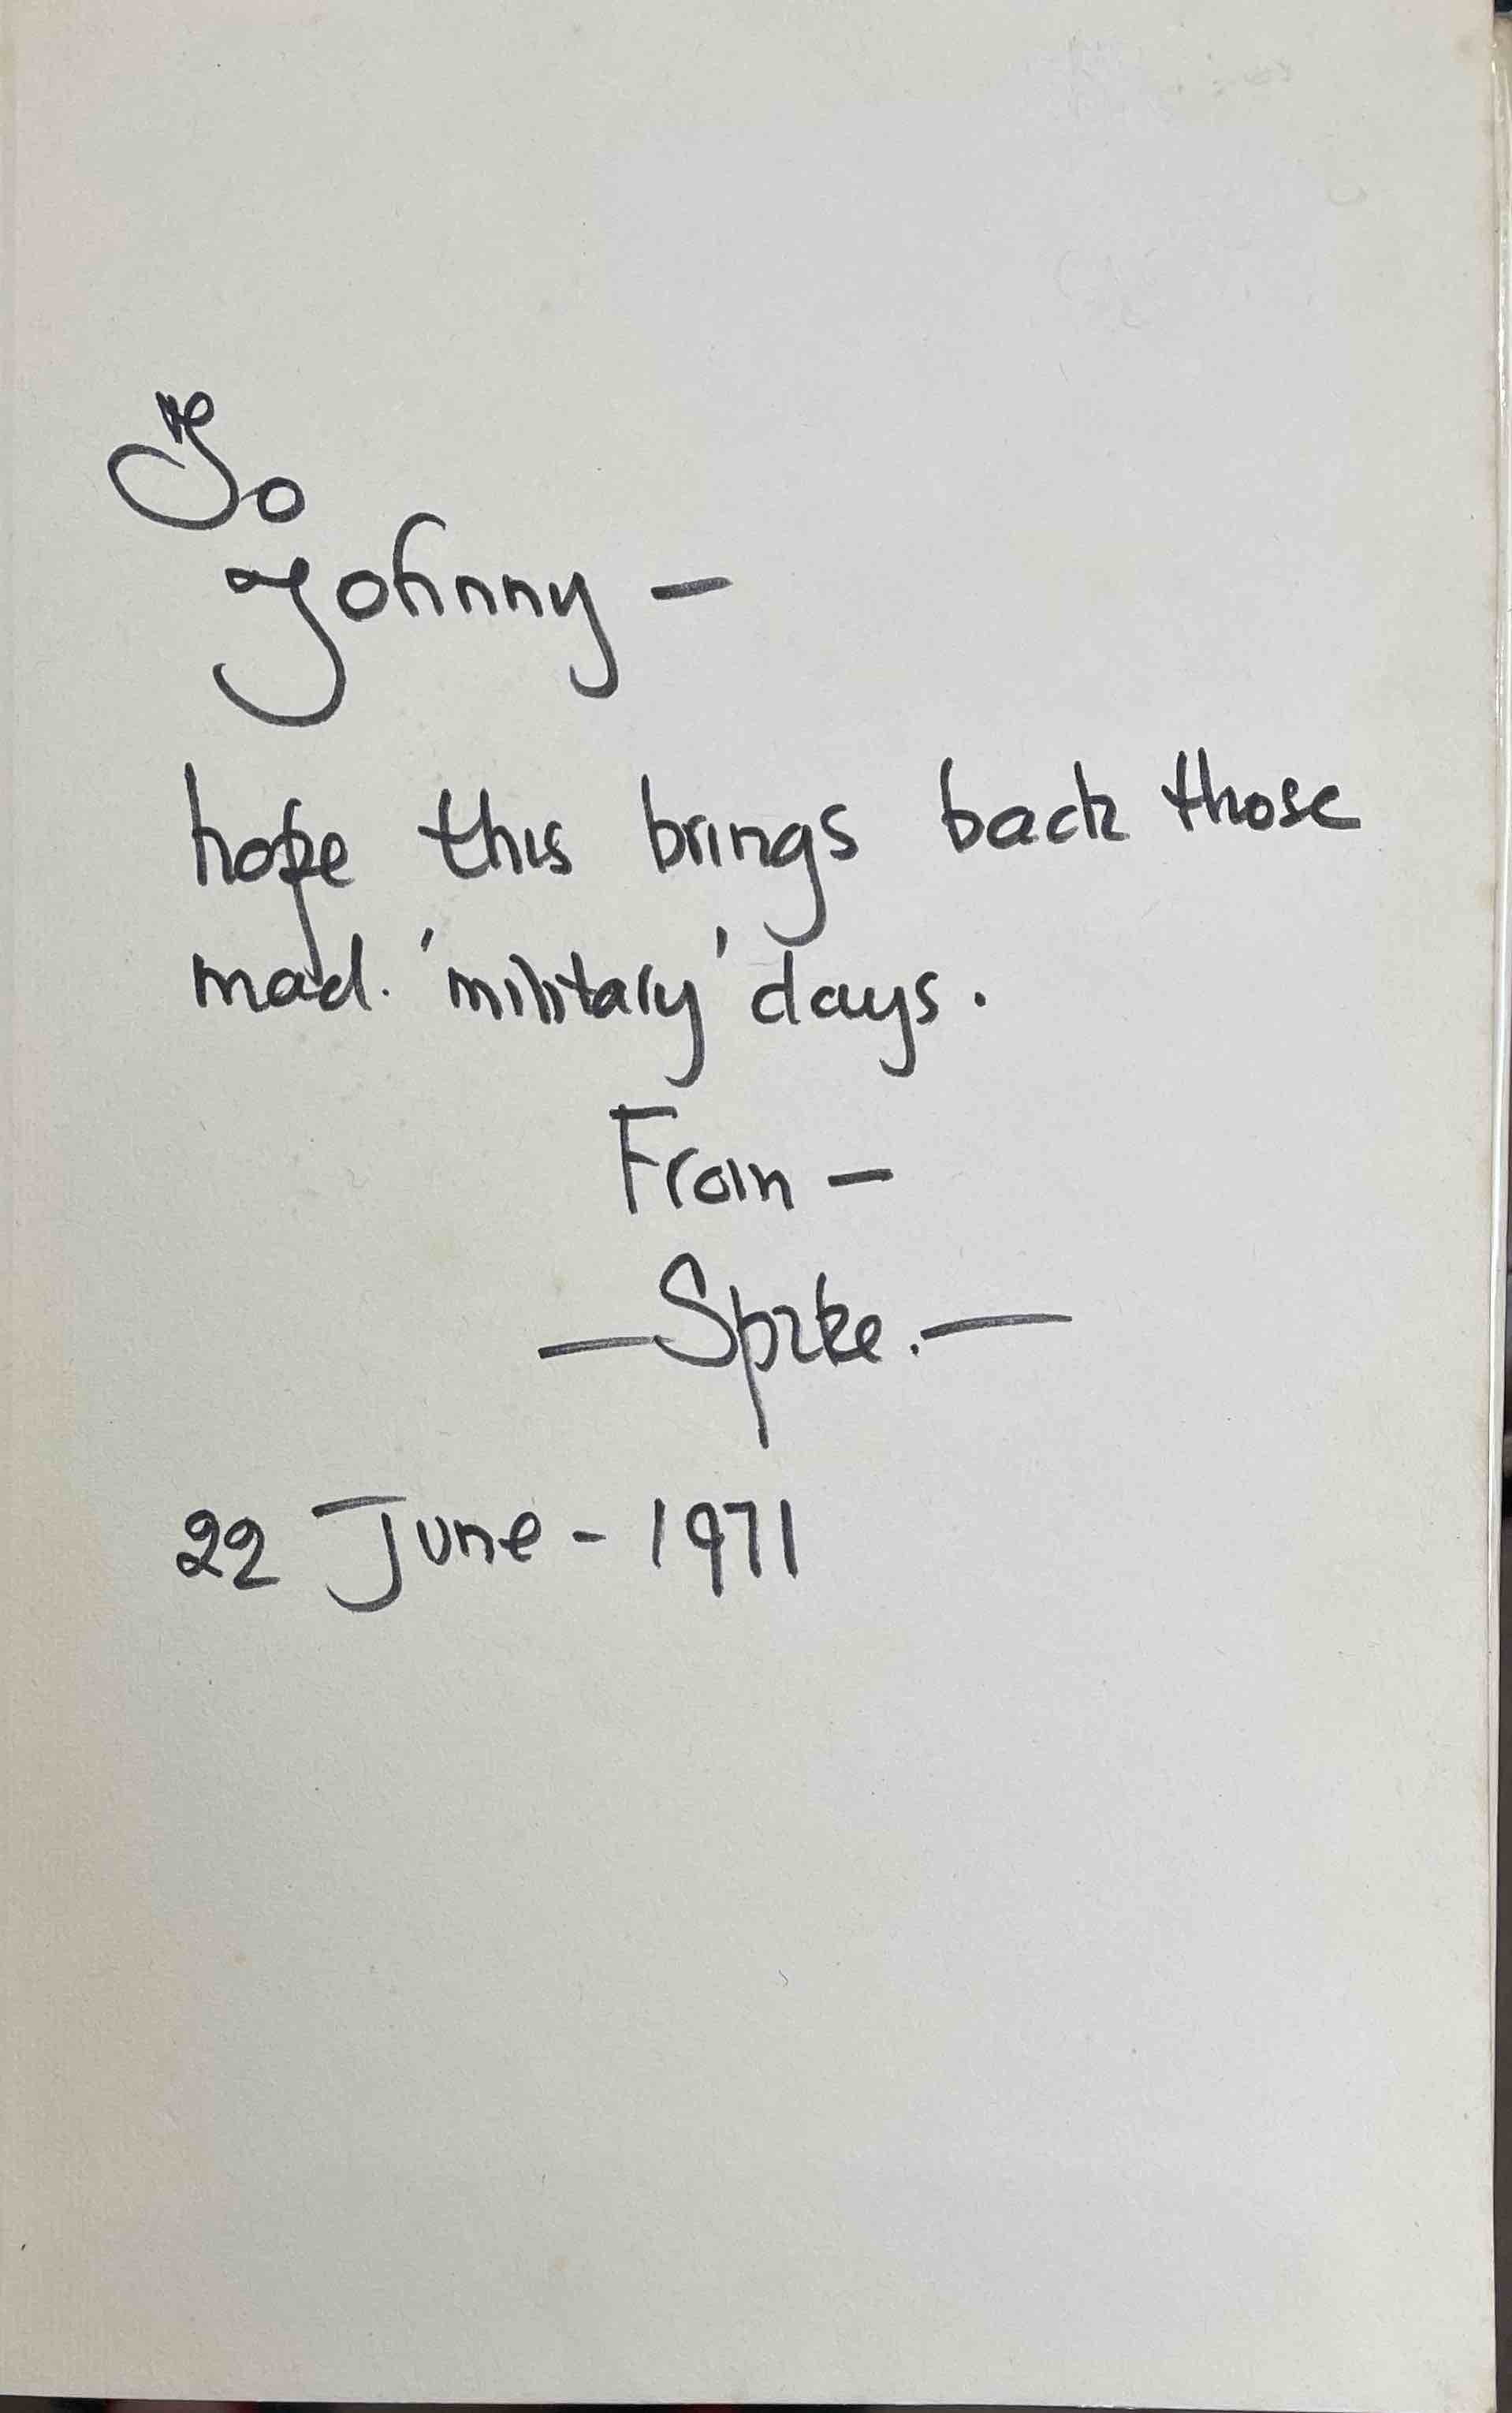 To
Johnny -
hope this brings back those
mad. 'military' days.
From -
- Spike. -
22 June - 1971